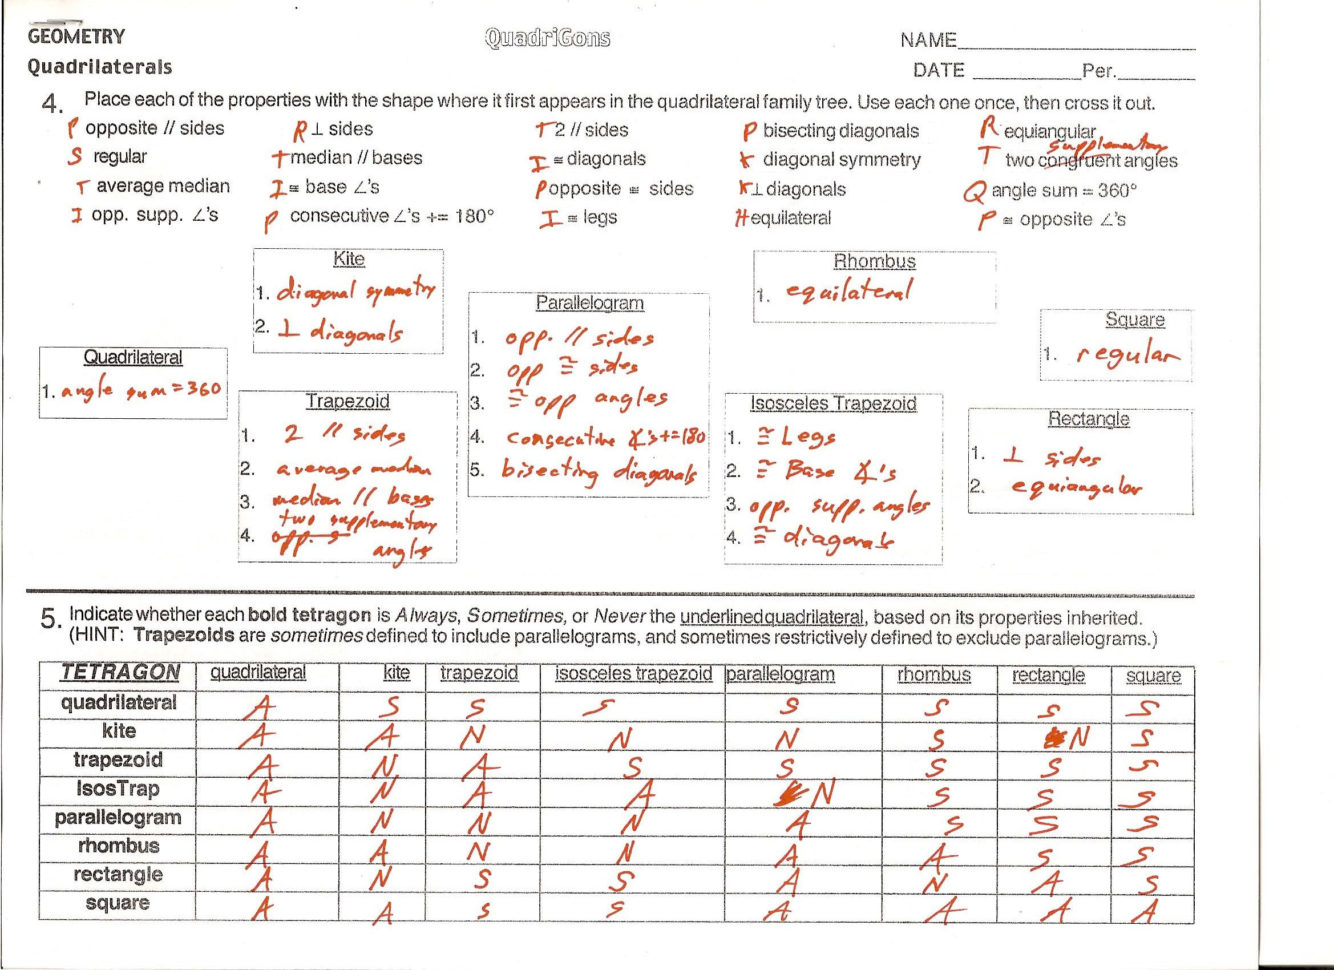 GEOMETRY QuadriGons NAME
Quadrilaterals DATE Per.
4. Place each of the properties with the shape where it first appears in the quadrilateral family tree. Use each one once, then cross it out.
P opposite // sides R ⊥ sides T 2 // sides P bisecting diagonals R equiangular
supplementary
S regular T median // bases I ≅ diagonals K diagonal symmetry T two congruent angles
T average median I ≅ base ∠'s P opposite ≅ sides K ⊥ diagonals Q angle sum = 360°
I opp. supp. ∠'s P consecutive ∠'s += 180° I ≅ legs H equilateral P ≅ opposite ∠'s
Kite
1. diagonal symmetry
2. ⊥ diagonals
Rhombus
1. equilateral
Parallelogram
1. opp. // sides
2. opp ≅ sides
3. ≅ opp angles
4. consecutive ∡'s += 180
5. bisecting diagonals
Square
1. regular
Quadrilateral
1. angle sum = 360
Trapezoid
1. 2 // sides
2. average median
3. median // bases
two supplementary
4. opp. s angles
Isosceles Trapezoid
1. ≅ Legs
2. ≅ Base ∡'s
3. opp. supp. angles
4. ≅ diagonals
Rectangle
1. ⊥ sides
2. equiangular
5. Indicate whether each bold tetragon is Always, Sometimes, or Never the underlined quadrilateral, based on its properties inherited.
(HINT: Trapezoids are sometimes defined to include parallelograms, and sometimes restrictively defined to exclude parallelograms.)
TETRAGON quadrilateral kite trapezoid isosceles trapezoid parallelogram rhombus rectangle square
quadrilateral A S S S S S S S
kite A A N N N S N S
trapezoid A N A S S S S S
IsosTrap A N A A N S S S
parallelogram A N N N A S S S
rhombus A A N N A A S S
rectangle A N S S A N A S
square A A S S A A A A